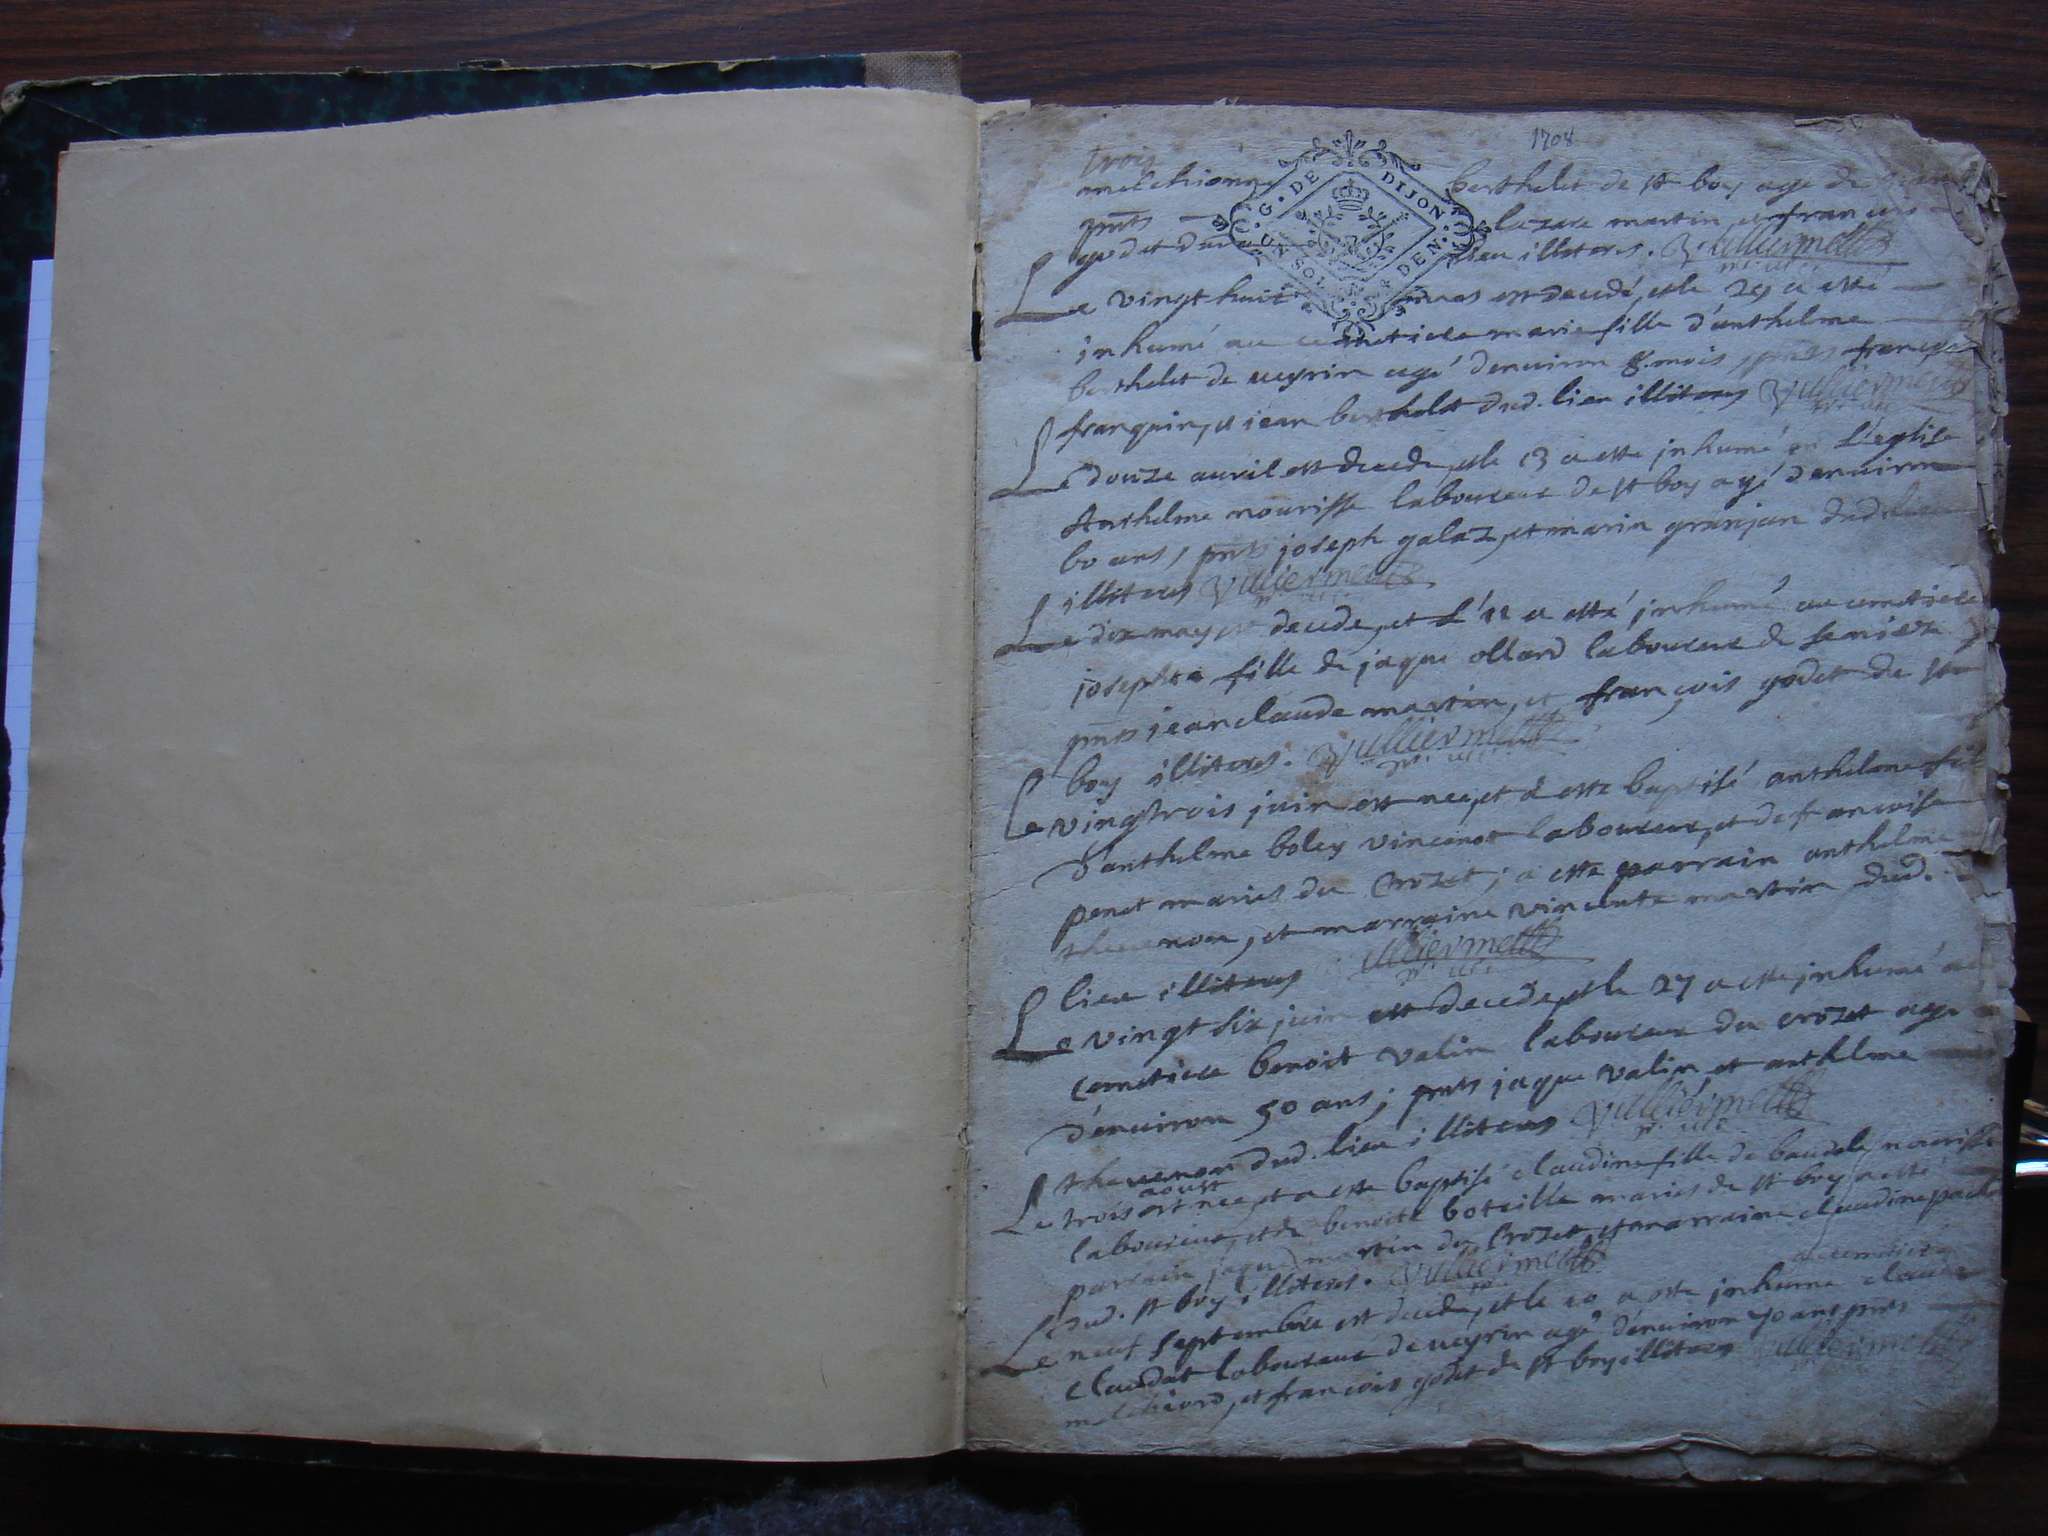 1708
trois
melchionne berthelet de st boy age de
pnts lazare martin et francois
godet dud lieu illiteres. Vulliermettz
G. DE DIJON
UN SOL DEN.
Le vingt huit mars est decedé, et le 29 a esté
inhumé au cemetiere marie fille d'anthelme
berthelet de veyrin agé d'environ 8. mois, pnts françois
franquin, et jean berthelet dud. lieu illiteres Vulliermettz
Le douze auril est decede, et le 13 a este inhumé en l'eglise
Anthelme nourisse laboureur de st boy agé d'enuiron
60 ans, pnts joseph galaz, et marin granjan dud lieu
illiteres Vulliermettz
Le dix may est decede, et l'11 a esté inhumé au cemetiere
josephte fille de jaque ollard laboureur de
pnts jean claude martin, et françois godet de st
boy illiteres. Vulliermettz
Le vingtrois juin est nee, et a este baptisé anthelme fils
d'anthelme boley vincenot laboureur, et de francoise
penet maries du Crozet; a este parrain anthelme
thevenon, et marraine vincente martin dud.
lieu illiteres Vulliermettz
Le vingt six juin est decede, et le 27 a este inhumé au
cemetiere benoit valin laboureur du crozet age
d'enuiron 50 ans; pnts jaque valin et anthelme
thevenon dud. lieu illiteres Vulliermettz
aoust
Le trois est nee, et a este baptisé claudine fille de baudele nourisse
laboureur, et de benoite boteille maries de st boy a esté
parrain jaque martin du Crozet, et marraine claudine
dud. st boy illiteres. Vulliermettz
au cemetiere
Le neuf septembre est decede, et le 10 a este inhume claude
claudat laboureur de veyrin agé d'enuiron 70 ans pnts
melchiord, et francois godet de st boy illiteres Vulliermettz